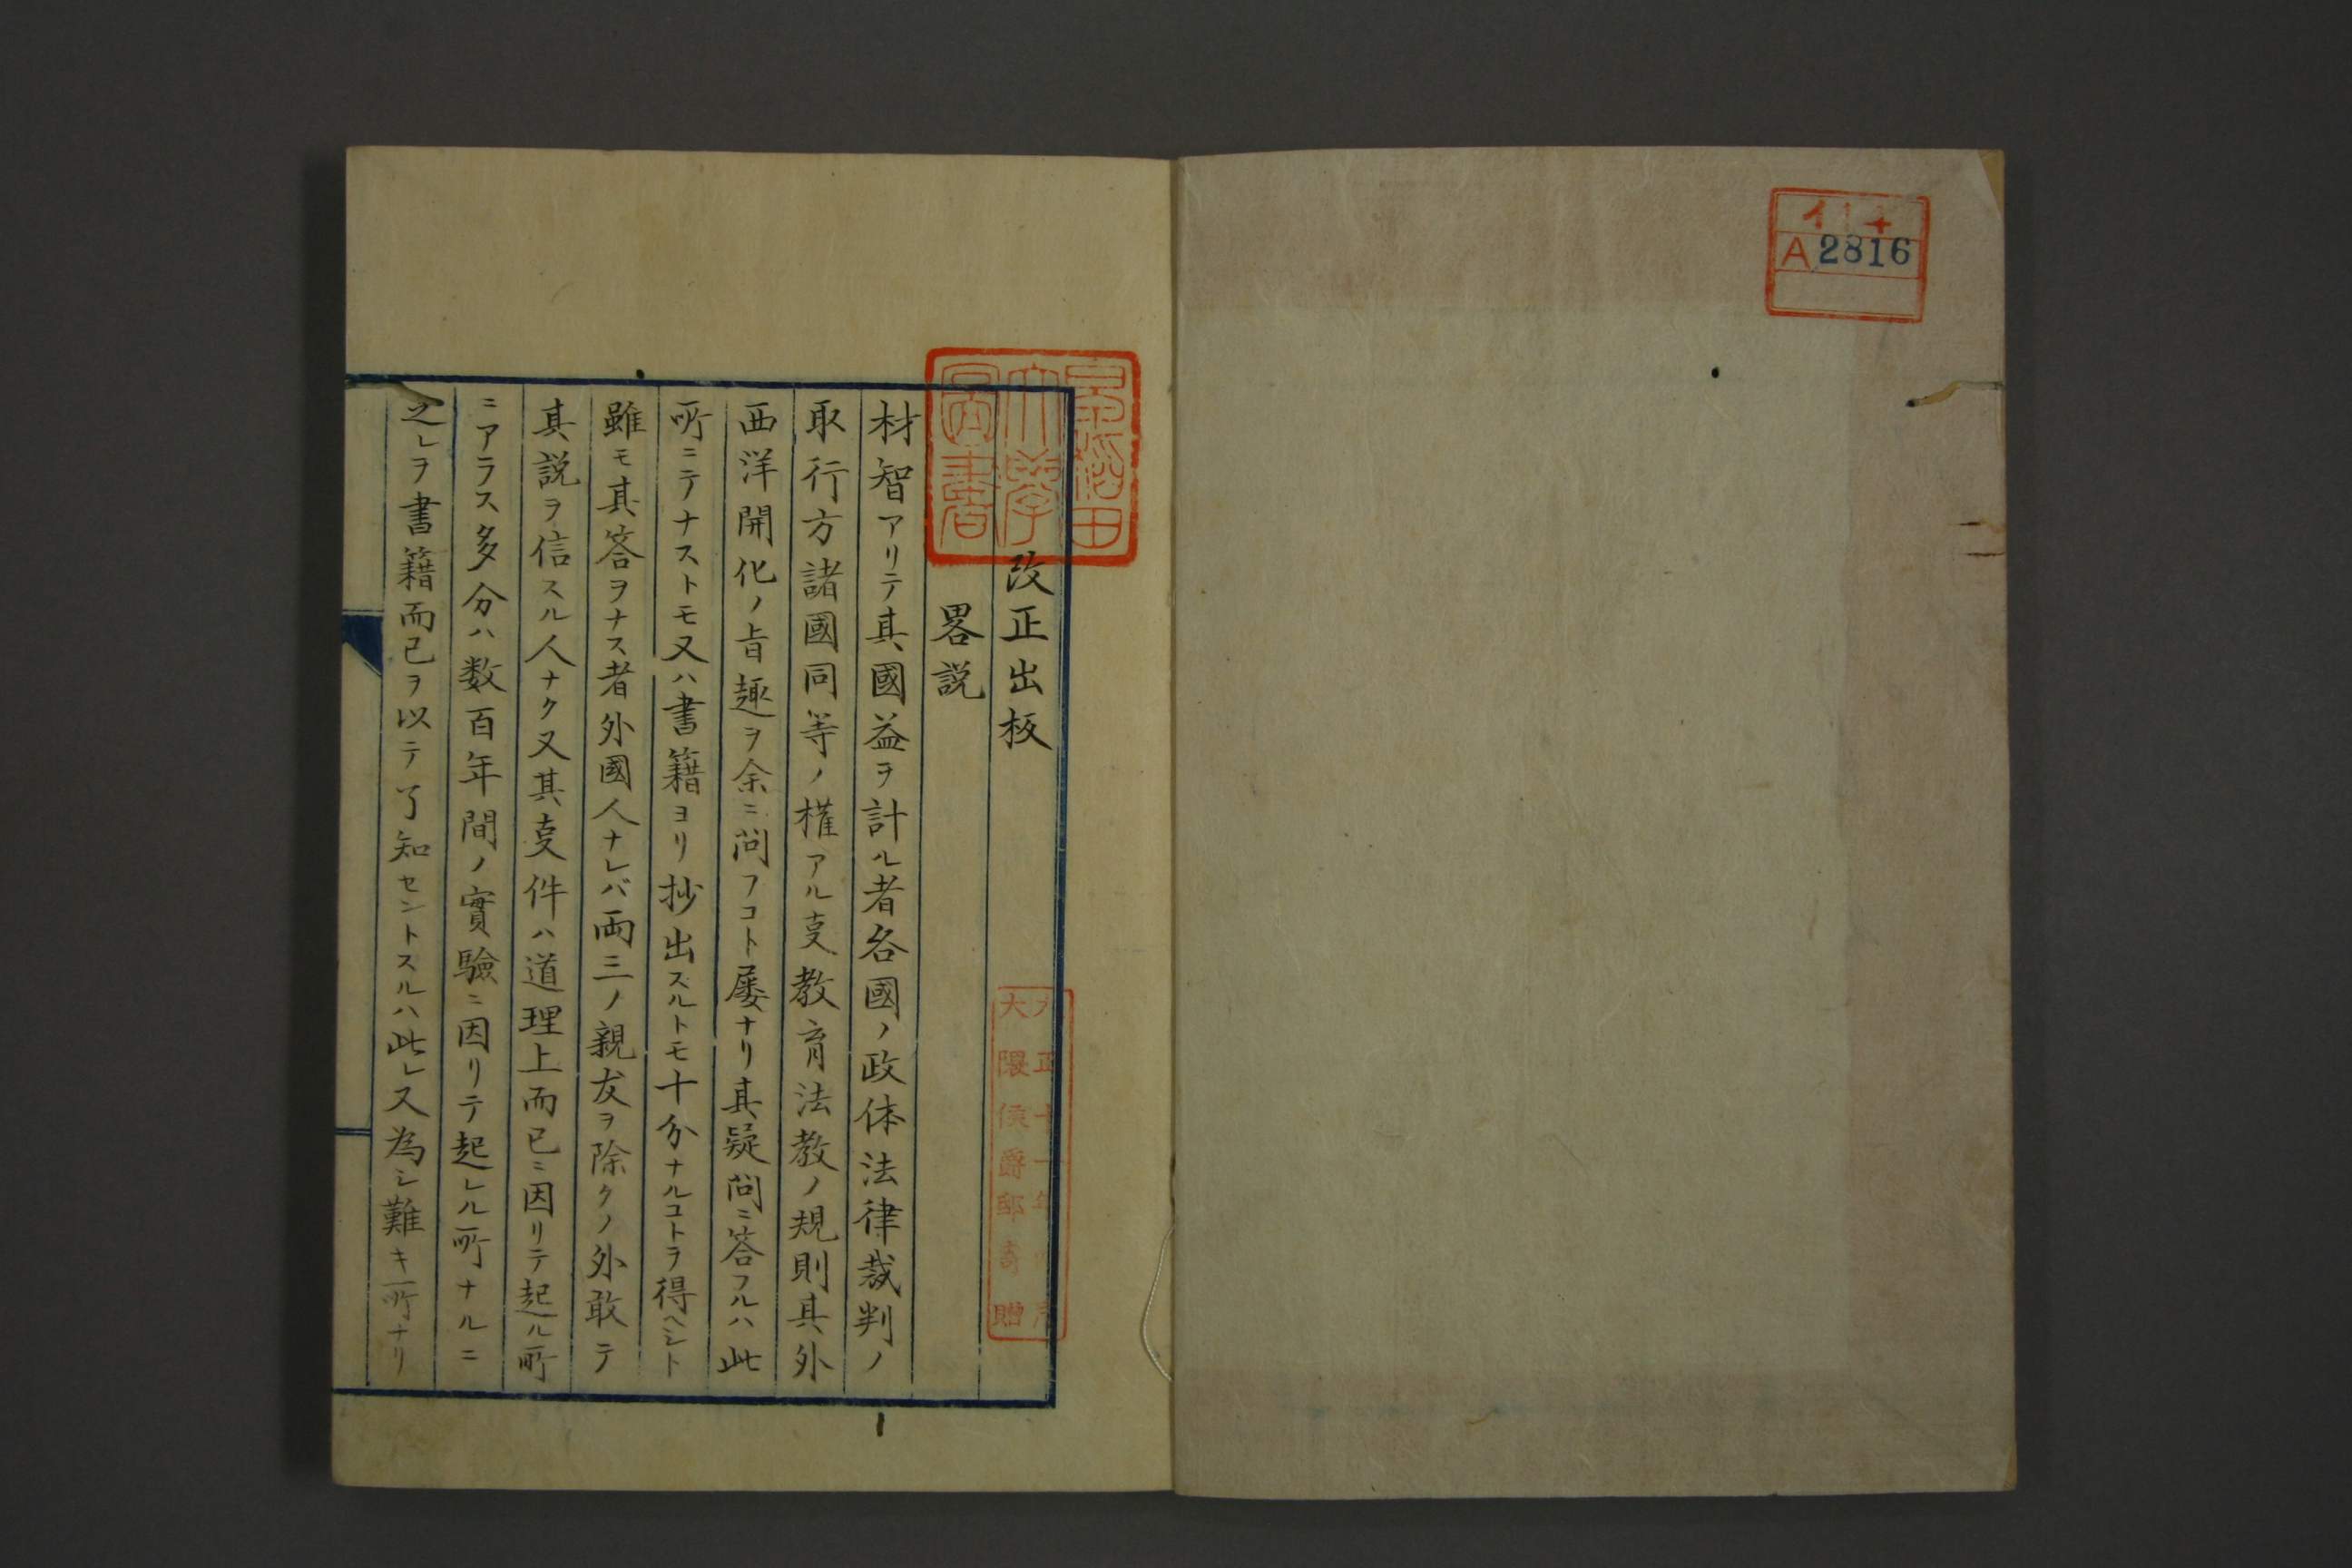 イ14
A2816
早稲田
大學
圖書
改正出板
大正十一年
大隈侯爵邸寄贈
畧説
材智アリテ其國益ヲ計ル者各國ノ政体法律裁判ノ
取行方諸國同等ノ権アル㕝教育法教ノ規則其外
西洋開化ノ旨趣ヲ余ニ問フコト屡ナリ其疑問ニ答フルハ此
所ニテナストモ又ハ書籍ヨリ抄出スルトモ十分ナルコトヲ得ヘシト
雖モ其答ヲナス者外國人ナレバ両三ノ親友ヲ除クノ外敢テ
其説ヲ信スル人ナク又其㕝件ハ道理上而已ニ因リテ起ル所
ニアラス多分ハ数百年間ノ實驗ニ因リテ起レル所ナルニ
之レヲ書籍而已ヲ以テ了知セントスルハ此レ又為シ難キ所ナリ